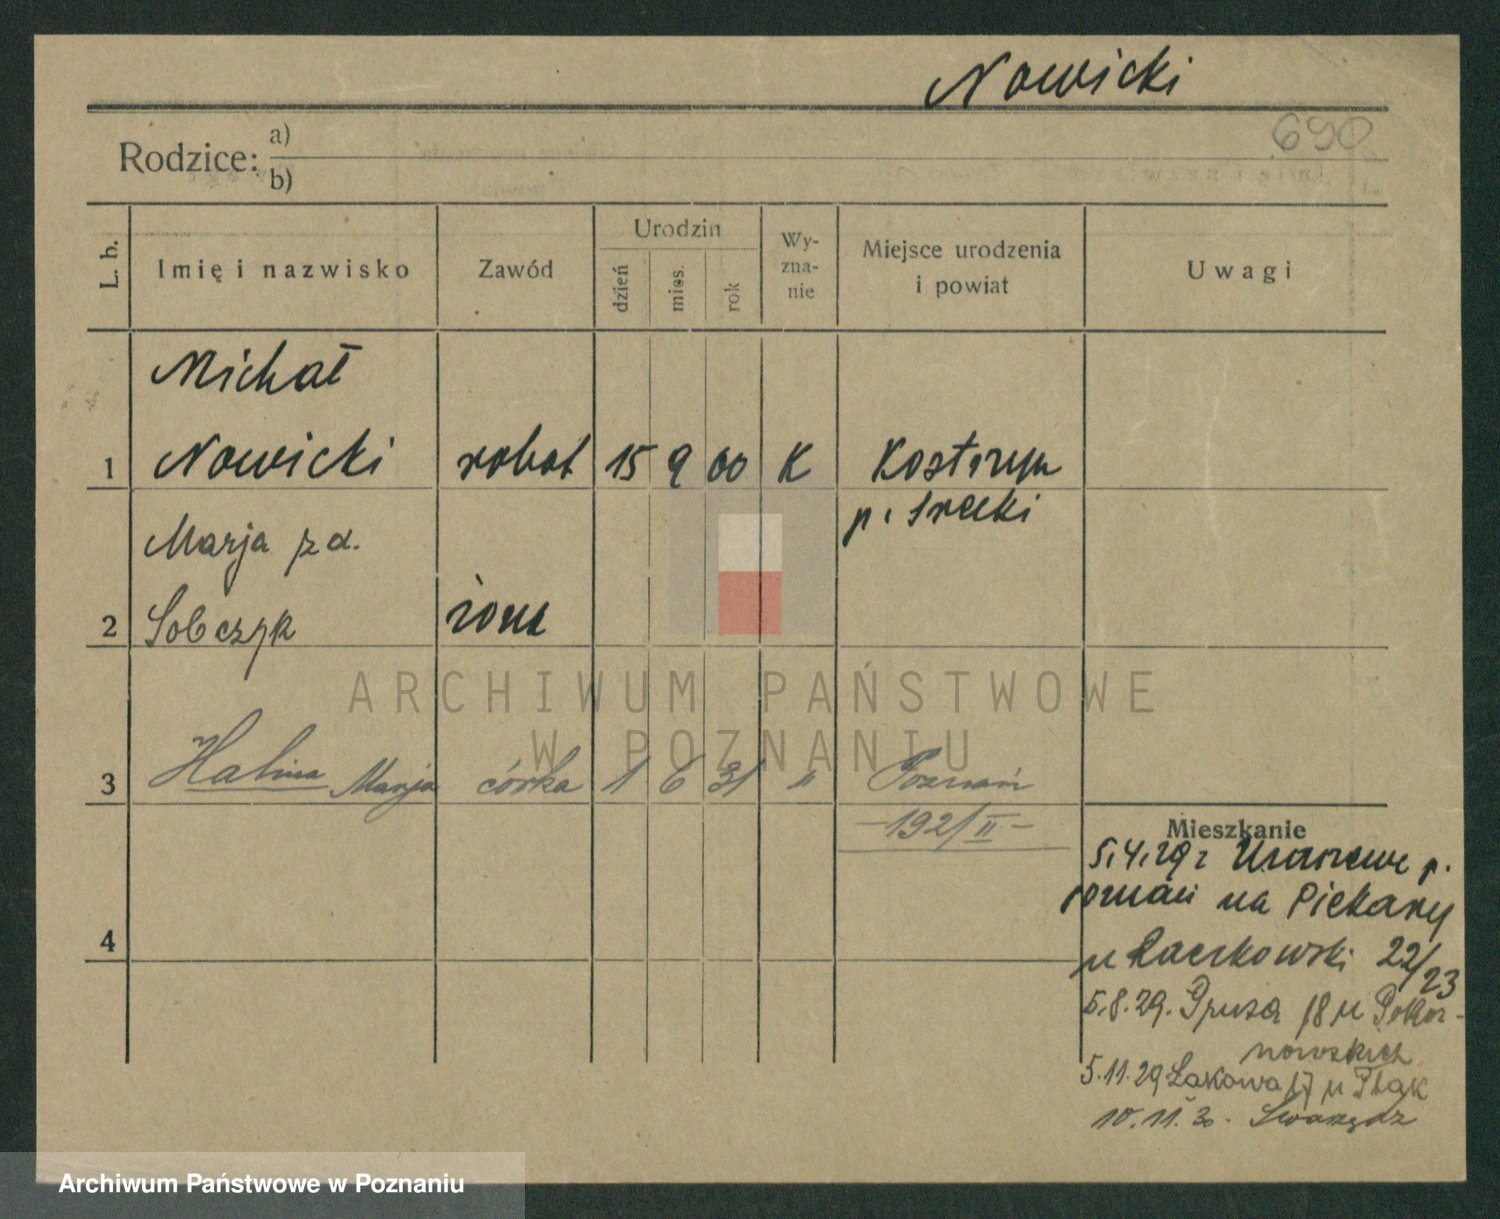 Nowicki
690
Rodzice: a)
b)
L. b.
Imię i nazwisko
Zawód
Urodzin
dzień
mies.
rok
Wy-
zna-
nie
Miejsce urodzenia
i powiat
Uwagi
Michał
1 Nowicki robot 15 9 00 K Kostrzyn
p. Srocki
Marja z d.
2 Sobczyk żona
3 Halina Marja córka 1 6 31 " Poznań
-1921/II-
4
Mieszkanie
5.4.29 z p.
Poznań na Piekary
u Raczkowski 22/23
5.8.29. 18 u Pokor-
nowskich
5.11.29 Łąkowa 17 u Ptak
10.11.30. Swarzędz
ARCHIWUM PAŃSTWOWE
W POZNANIU
Archiwum Państwowe w Poznaniu